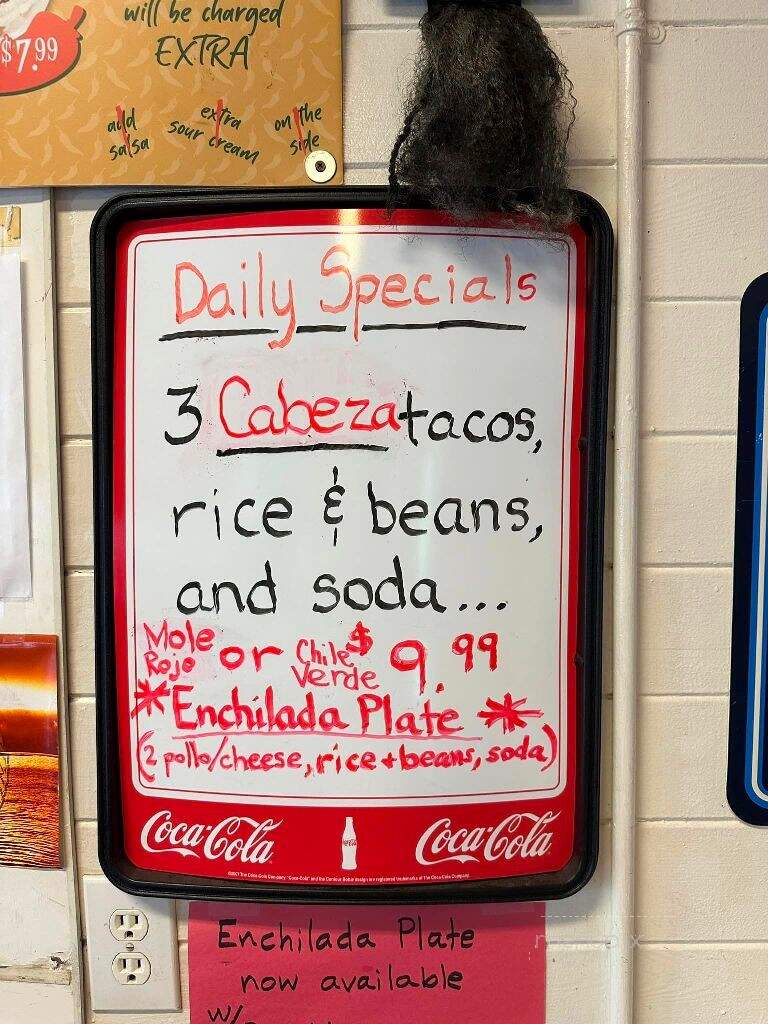 $7.99
will be charged
EXTRA
add salsa
extra sour cream
on the side
Daily Specials
3 Cabeza tacos,
rice & beans,
and soda...
Mole Rojo or Chile Verde $9.99
*Enchilada Plate*
(2 pollo/cheese, rice + beans, soda)
Coca-Cola
Coca-Cola
Enchilada Plate
now available
w/